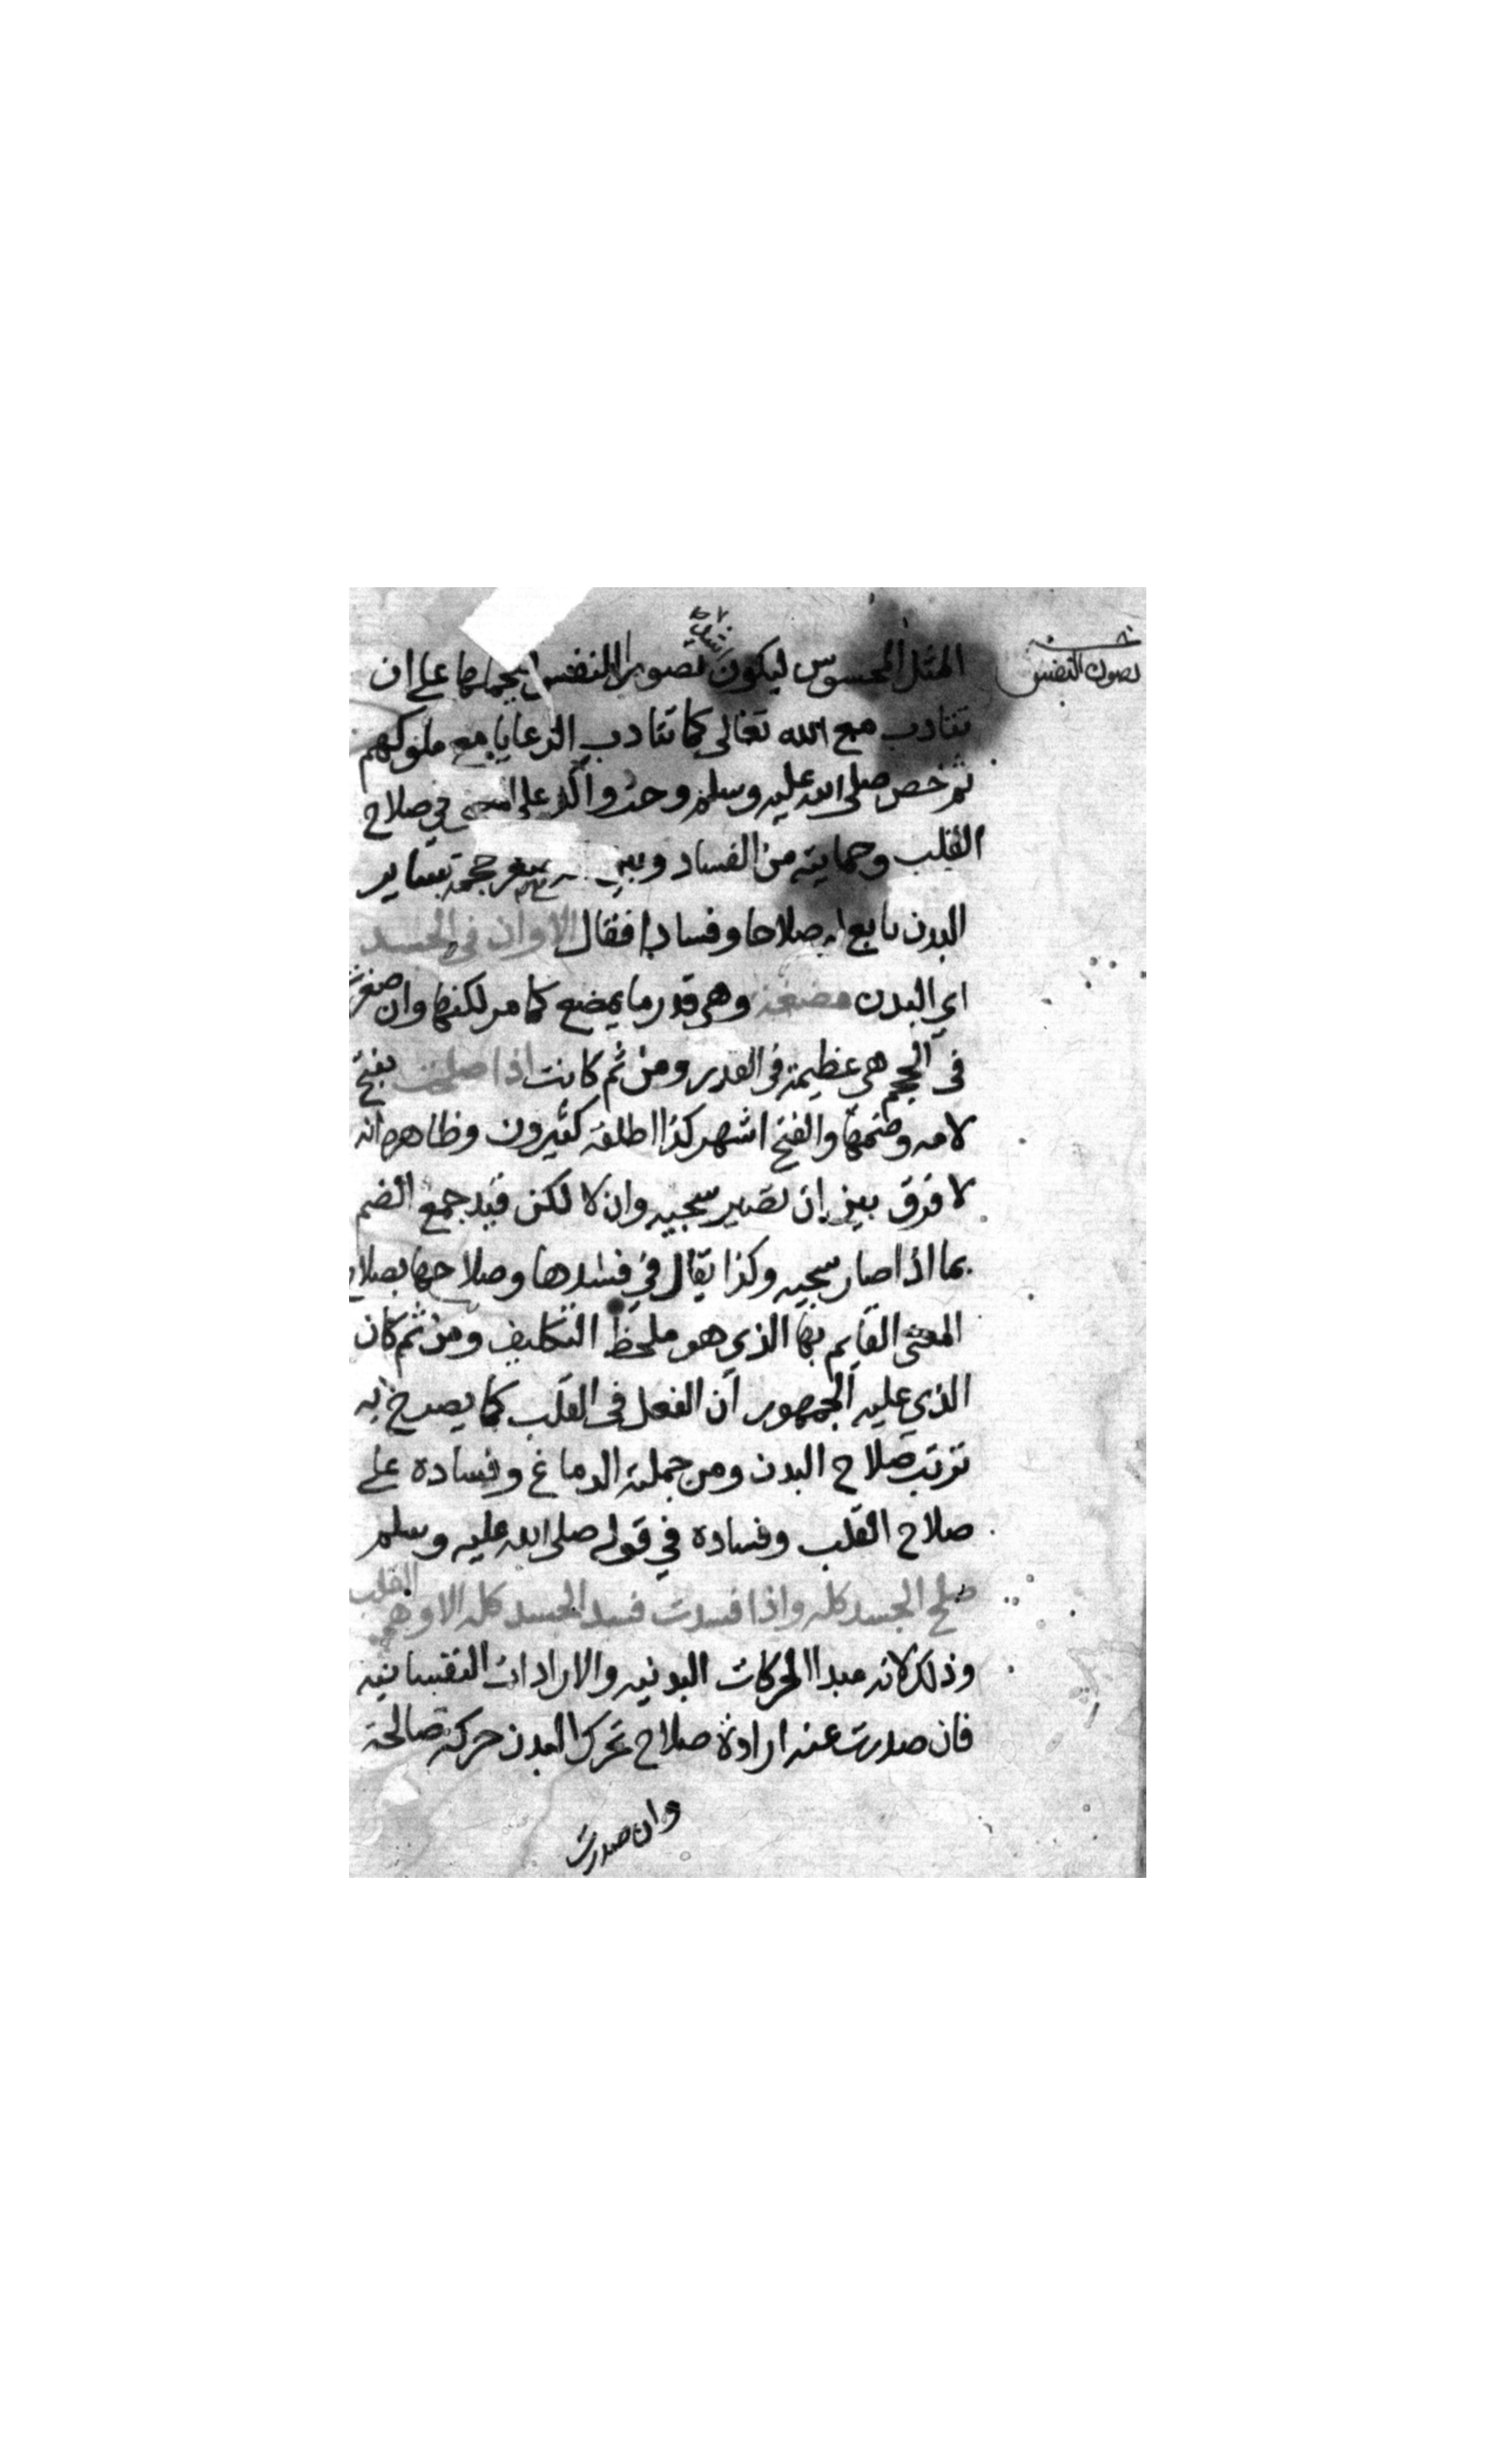 المثل المحسوس ليكون تصوير النفس بجملها على ان
تصور النفس
تتادب مع الله تعالى كما تتادب الرعايا مع ملوكهم
ثم خص صلى الله عليه وسلم وحث واكد على السعي في صلاح
القلب وحمايته من الفساد وبين صغر حجمه سائر
البدن تابع له صلاحا وفسادا فقال الا وان في الجسد
اي البدن مضغة وهي قدر ما يمضع كما مر لكنها وان صغرت
في الحجم هي عظيمة في القدر ومن ثم كانت اذا صلحت بفتح
لامه وضمها والفتح اشهر كذا اطلقه كثيرون وظاهره انه
لا فرق بين ان تصير سجيه وان لا لكن قيد جمع الضم
بما اذا صار سجيه وكذا يقال في فسدها وصلاحها بصلاح
المعنى القايم بها الذي هو ملحظ التكليف ومن ثم كان
الذي عليه الجمهور ان الفعل في القلب كما يصرح به
ترتب صلاح البدن ومن جملته الدماغ وفساده على
صلاح القلب وفساده في قوله صلى الله عليه وسلم
صلح الجسد كله واذا فسدت فسد الجسد كله الا وهي القلب
وذلك لانه مبدا الحركات البدنيه والارادات النفسانيه
فان صدرت عنه ارادة صلاح تحرك البدن حركة صالحة
وان صدرت